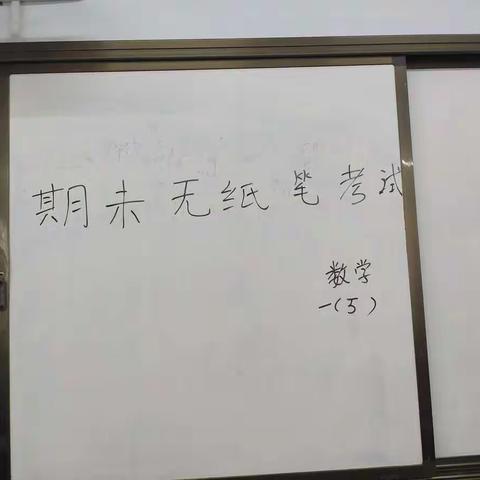 期末无纸笔考试
数学
一(5)